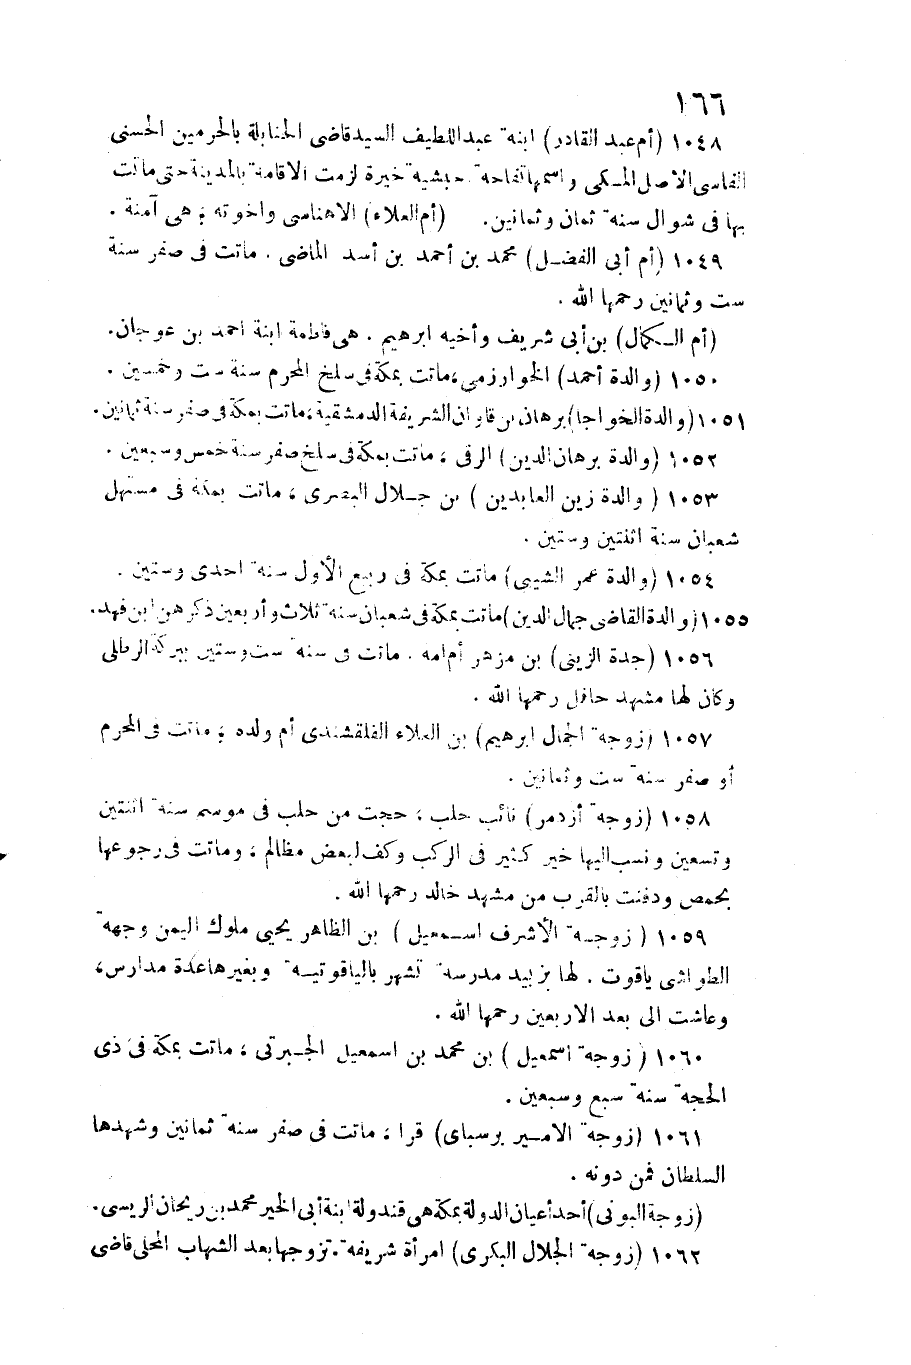 ١٦٦
١٠٤٨ (أم عبد القادر) ابنة عبد اللطيف السيد قاضى الحنابلة بالحرمين الحسنى
الفاسى الأصل المكى واسمها تفاحة حبشية خيرة لزمت الاقامة بالمدينة حتى ماتت
بها فى شوال سنة ثمان وثمانين. (أم العلاء) الاهناسى واخوته ؛ هى آمنة .
١٠٤٩ (أم أبى الفضل) محمد بن أحمد بن أسد الماضى . ماتت فى صفر سنة
ست وثمانين رحمها الله .
(أم الكمال) بن أبى شريف وأخيه ابرهيم . هى فاطمة ابنة احمد بن عوجان.
١٠٥٠ (والدة أحمد) الخوارزمى ؛ ماتت بمكة فى سلخ المحرم سنة ست وخمسين .
١٠٥١ (والدة الخواجا) برهان بن قاوان الشريفة الدمشقية ؛ ماتت بمكة فى صفر سنة ثمانين.
١٠٥٢ (والدة برهان الدين) الرقى ؛ ماتت بمكة فى سلخ صفر سنة خمس وسبعين .
١٠٥٣ ( والدة زين العابدين ) بن جلال البصرى ؛ ماتت بمكة فى مستهل
شعبان سنة اثنتين وستين .
١٠٥٤ (والدة عمر الشيبى) ماتت بمكة فى ربيع الأول سنة احدى وستين .
١٠٥٥ (والدة القاضى جمال الدين) ماتت بمكة فى شعبان سنة ثلاث وأربعين ذكرهن ابن فهد.
١٠٥٦ (جدة الزينى) بن مزهر أم امه . ماتت فى سنة ست وستين ببركة الرطلى
وكان لها مشهد حافل رحمها الله .
١٠٥٧ (زوجة الجمال ابرهيم) بن العلاء القلقشندى أم ولده ؛ ماتت فى المحرم
أو صفر سنة ست وثمانين .
١٠٥٨ (زوجة أزدمر) نائب حلب ؛ حجت من حلب فى موسم سنة اثنتين
وتسعين ونسب اليها خير كثير فى الركب وكف لبعض مظالم ؛ وماتت فى رجوعها
بحمص ودفنت بالقرب من مشهد خالد رحمها الله .
١٠٥٩ ( زوجة الأشرف اسمعيل ) بن الظاهر يحيى ملوك اليمن وجهة
الطواشى ياقوت . لها بزبيد مدرسة تشهر بالياقوتية وبغيرها عدة مدارس،
وعاشت الى بعد الاربعين رحمها الله .
١٠٦٠ ( زوجة اسمعيل ) بن محمد بن اسمعيل الجبرتى ؛ ماتت بمكة فى ذى
الحجة سنة سبع وسبعين .
١٠٦١ (زوجة الامير برسباى) قرا ؛ ماتت فى صفر سنة ثمانين وشهدها
السلطان فمن دونه .
(زوجة البونى) أحد أعيان الدولة بمكة هى قندولة ابنة أبى الخير محمد بن ريحان الريسى.
١٠٦٢ (زوجة الجلال البكرى) امرأة شريفة . تزوجها بعد الشهاب المحلى قاضى